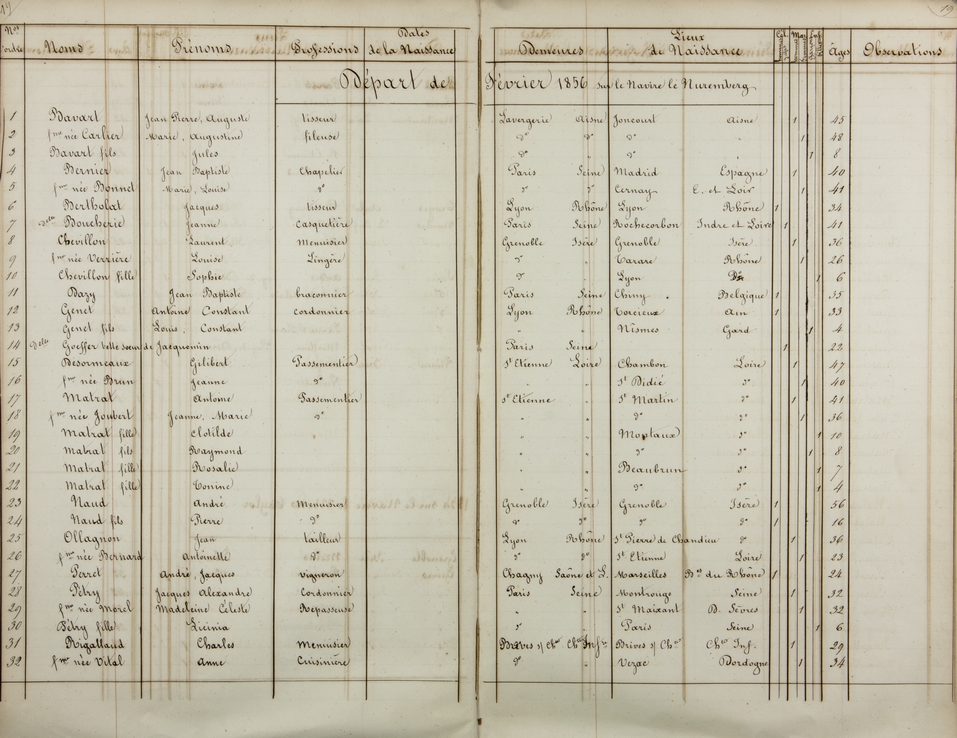 19 19
Nos d'ordre Noms Prénoms Professions Dates de la Naissance Demeures Lieux de Naissance Âges Observations
Départ de Février 1856 sur le Navire le Nuremberg
1 Bavart Jean Pierre, Auguste tisseur Lavergerie Aisne Joncourt Aisne 1 45
2 fme née Carlier Marie, Augustine fileuse " do do " 1 48
3 Bavart fils Jules do " do " 1 8
4 Bernier Jean Baptiste Chapelier Paris Seine Madrid Espagne 1 40
5 fme née Bonnet Marie, Louise do " do Cernay E. et Loir 1 41
6 Bertholat Jacques tisseur Lyon Rhône Lyon Rhône 1 34
7 Delle Boucherie Jeanne Casquetière Paris Seine Rochecorbon Indre et Loire 1 41
8 Chevillon Laurent Menuisier Grenoble Isère Grenoble Isère 1 36
9 fme née Verrière Louise Lingère do " Tarare Rhône 1 26
10 Chevillon fille Sophie do " Lyon 1 6
11 Bazy Jean Baptiste braconnier Paris Seine Chiny Belgique 1 35
12 Genet Antoine Constant cordonnier Lyon Rhône Torcieux Ain 1 33
13 Genet fils Louis, Constant " " Nismes Gard 1 4
14 Delle Goeffer belle sœur de Jacquemin Paris Seine 1 22
15 Desormeaux Gilibert Passementier St Etienne Loire Chambon Loire 1 47
16 fme née Brun Jeanne do " " St Didié do 1 40
17 Matrat Antoine Passementier St Etienne " St Martin do 1 41
18 fme née Joubert Jeanne, Marie do " " do do 1 36
19 Matrat fille Clotilde " " Montaux do 1 10
20 Matrat fils Raymond " " do do 1 8
21 Matrat fille Rosalie " " Beaubrun do 1 7
22 Matrat fille Tonine " " do do 1 4
23 Naud André Menuisier Grenoble Isère Grenoble Isère 1 56
24 Naud fils Pierre do do do do do 1 16
25 Ollagnon Jean tailleur Lyon Rhône St Pierre de Chandieu do 1 36
26 fme née Bernard Antoinette do do do St Etienne Loire 1 23
27 Perret André, Jacques vigneron Chagny Saône et L. Marseilles Bes du Rhône 1 24
28 Pétry Jacques Alexandre Cordonnier Paris Seine Montrouge Seine 1 32
29 fme née Morel Madeleine Céleste Repasseuse " " St Maixant D. Sèvres 1 32
30 Pétry fille Licinia do " Paris Seine 1 6
31 Rigallaud Charles Menuisier Brives s/ Chte Chte Infre Brives s/ Chte Chte Inf. 1 29
32 fme née Vital Anne Cuisinière do " Vezac Dordogne 1 34